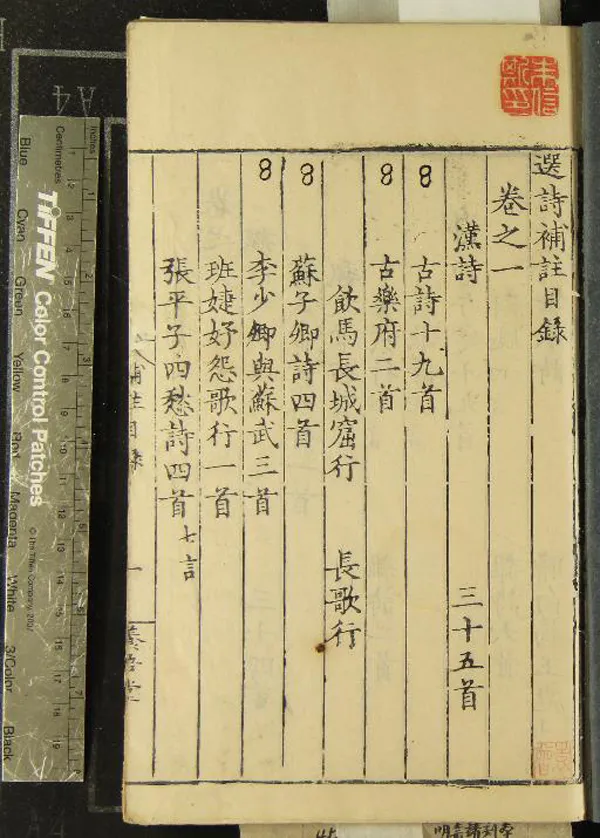 選詩補註目録
卷之一
漢詩 三十五首
8 古詩十九首
8 古樂府二首
飲馬長城窟行 長歌行
8 蘇子卿詩四首
8 李少卿與蘇武三首
班婕妤怨歌行一首
張平子四愁詩四首 七言
補註目録
一
養吾堂
A4
Inches
Centimetres
TIFFEN Color Control Patches
© The Tiffen Company, 2007
Blue
Cyan
Green
Yellow
Red
Magenta
White
3/Color
Black